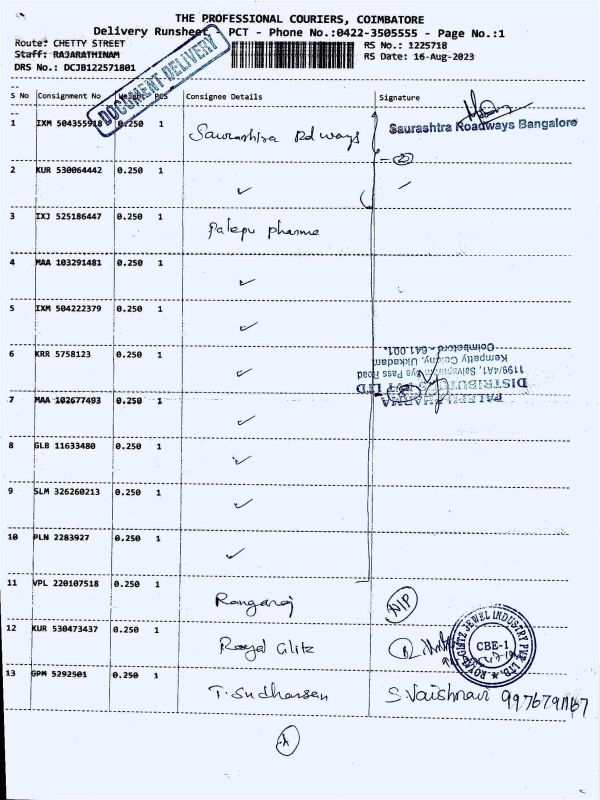 THE PROFESSIONAL COURIERS, COIMBATORE
Delivery Runsheet, - PCT - Phone No.:0422-3505555 - Page No.:1
Route: CHETTY STREET RS No.: 1225718
Staff: RAJARATHINAM RS Date: 16-Aug-2023
DRS No.: DCJB122571801
DOCUMENT DELIVERY
S No Consignment No Weight PCS Consignee Details Signature
1 IXM 504355918 0.250 1 Saurashtra Rdways Saurashtra Roadways Bangalore
2 KUR 530064442 0.250 1 ✓
3 IXJ 525186447 0.250 1 Palepu pharma
4 MAA 103291481 0.250 1 ✓
5 IXM 504222379 0.250 1 ✓
6 KRR 5758123 0.250 1 ✓
PALEPU PHARMA
DISTRIBUTORS PVT LTD
1199/4A1, Bye Pass Road
Kempatty Colony, Ukkadam
Coimbatore - 641 001.
7 MAA 102677493 0.250 1 ✓
8 GLB 11633480 0.250 1 ✓
9 SLM 326260213 0.250 1 ✓
10 PLN 2283927 0.250 1 ✓
11 VPL 220107518 0.250 1 Rangaraj NIP
12 KUR 530473437 0.250 1 Royal Glitz
ROYAL GLITZ JEWEL INDUSTRY PVT. LTD.
CBE-1
13 GPM 5292501 0.250 1 T. Sudharsan S. Vaishnavi